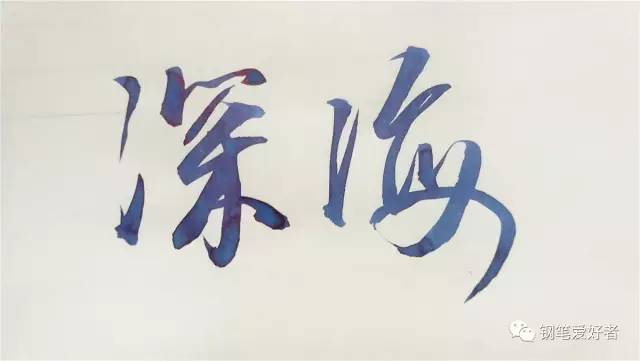 深海
钢笔爱好者